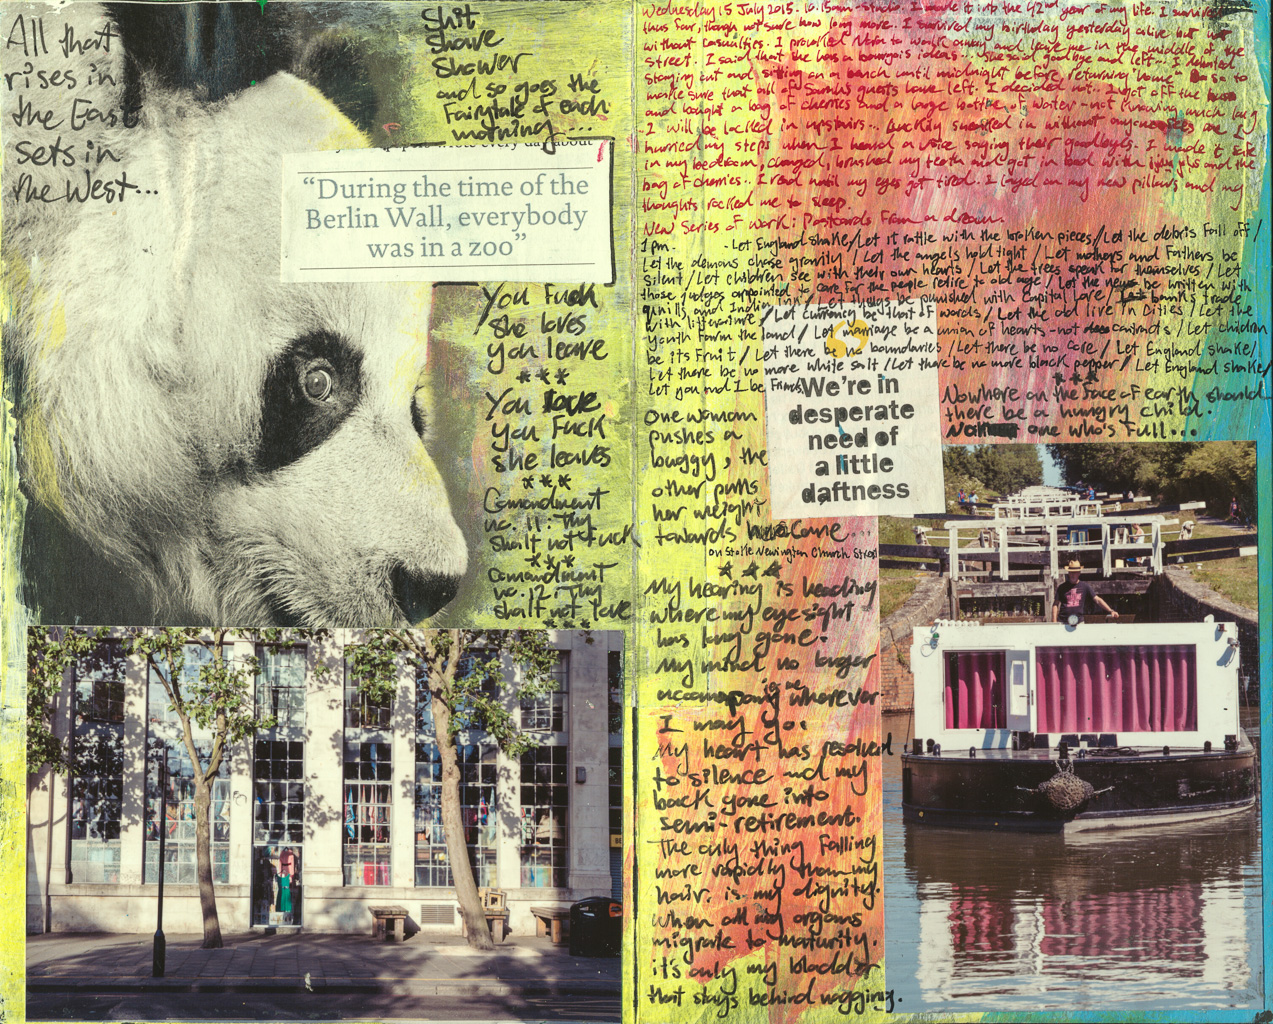 All that
rises in
the East
sets in
the West...
Shit
Shave
Shower
and so goes the
Fairytale of each
morning...
“During the time of the
Berlin Wall, everybody
was in a zoo”
You Fuck
she loves
you leave
***
You love
you Fuck
she leaves
***
Comandment
no. 11: Thy
shalt not Fuck
***
Comandment
no. 12: Thy
shalt not love
***
Wednesday 15 July 2015. 10.15am - studio. I made it into the 42nd year of my life. I survived
thus far, though not sure how long more. I survived my birthday yesterday alive but not
without casualties. I provoked to walk away and leave me in the middle of the
street. I said that she has a bourgois ideas... She said goodbye and left. I debated
staying out and sitting on a bench until midnight before returning "home" so as to
make sure that all of guests have left. I decided not. I got off the bus
and bought a bag of cherries and a large bottle of water - not knowing much
I will be locked in upstairs... Luckily sneaked in without anyone
hurried my steps when I heard a voice saying their goodbyes. I made it safe
in my bedroom, changed, brushed my teeth and got in bed with and the
bag of cherries. I read until my eyes got tired. I layed on my new pillows and my
thoughts rocked me to sleep.
New Series of work: Postcards From a dream.
1pm. - Let England shake/Let it rattle with the broken pieces/Let the debris fall off/
Let the demons chase gravity/Let the angels hold tight/Let mothers and Fathers be
silent/Let children see with their own hearts/Let the trees speak for themselves/Let
those judges appointed to care for the people retire to old age/Let the news be written with
quills and Indian ink/Let things be punished with Capital Love/Let banks trade
with literature/Let currency be that of words/Let the old live in Cities/Let the
youth farm the land/Let marriage be a union of hearts - not contracts/Let children
be its Fruit/Let there be no boundaries/Let there be no core/Let England shake/
Let there be no more white salt/Let there be no more black pepper/Let England shake/
Let you and I be Friends.
We're in
desperate
need of
a little
daftness
***
Nowhere on the face of earth should
there be a hungry child.
one who's full...
One woman
pushes a
buggy, the
other pulls
her weight
towards
on Stoke Newington Church Street
***
My hearing is heading
where my eyesight
has long gone.
My mind no longer
accompany me wherever
I may go.
My heart has resolved
to silence and my
back gone into
semi-retirement.
The only thing falling
more rapidly than my
hair, is my dignity.
When all my organs
migrate to maturity.
it's only my bladder
that stays behind nagging.